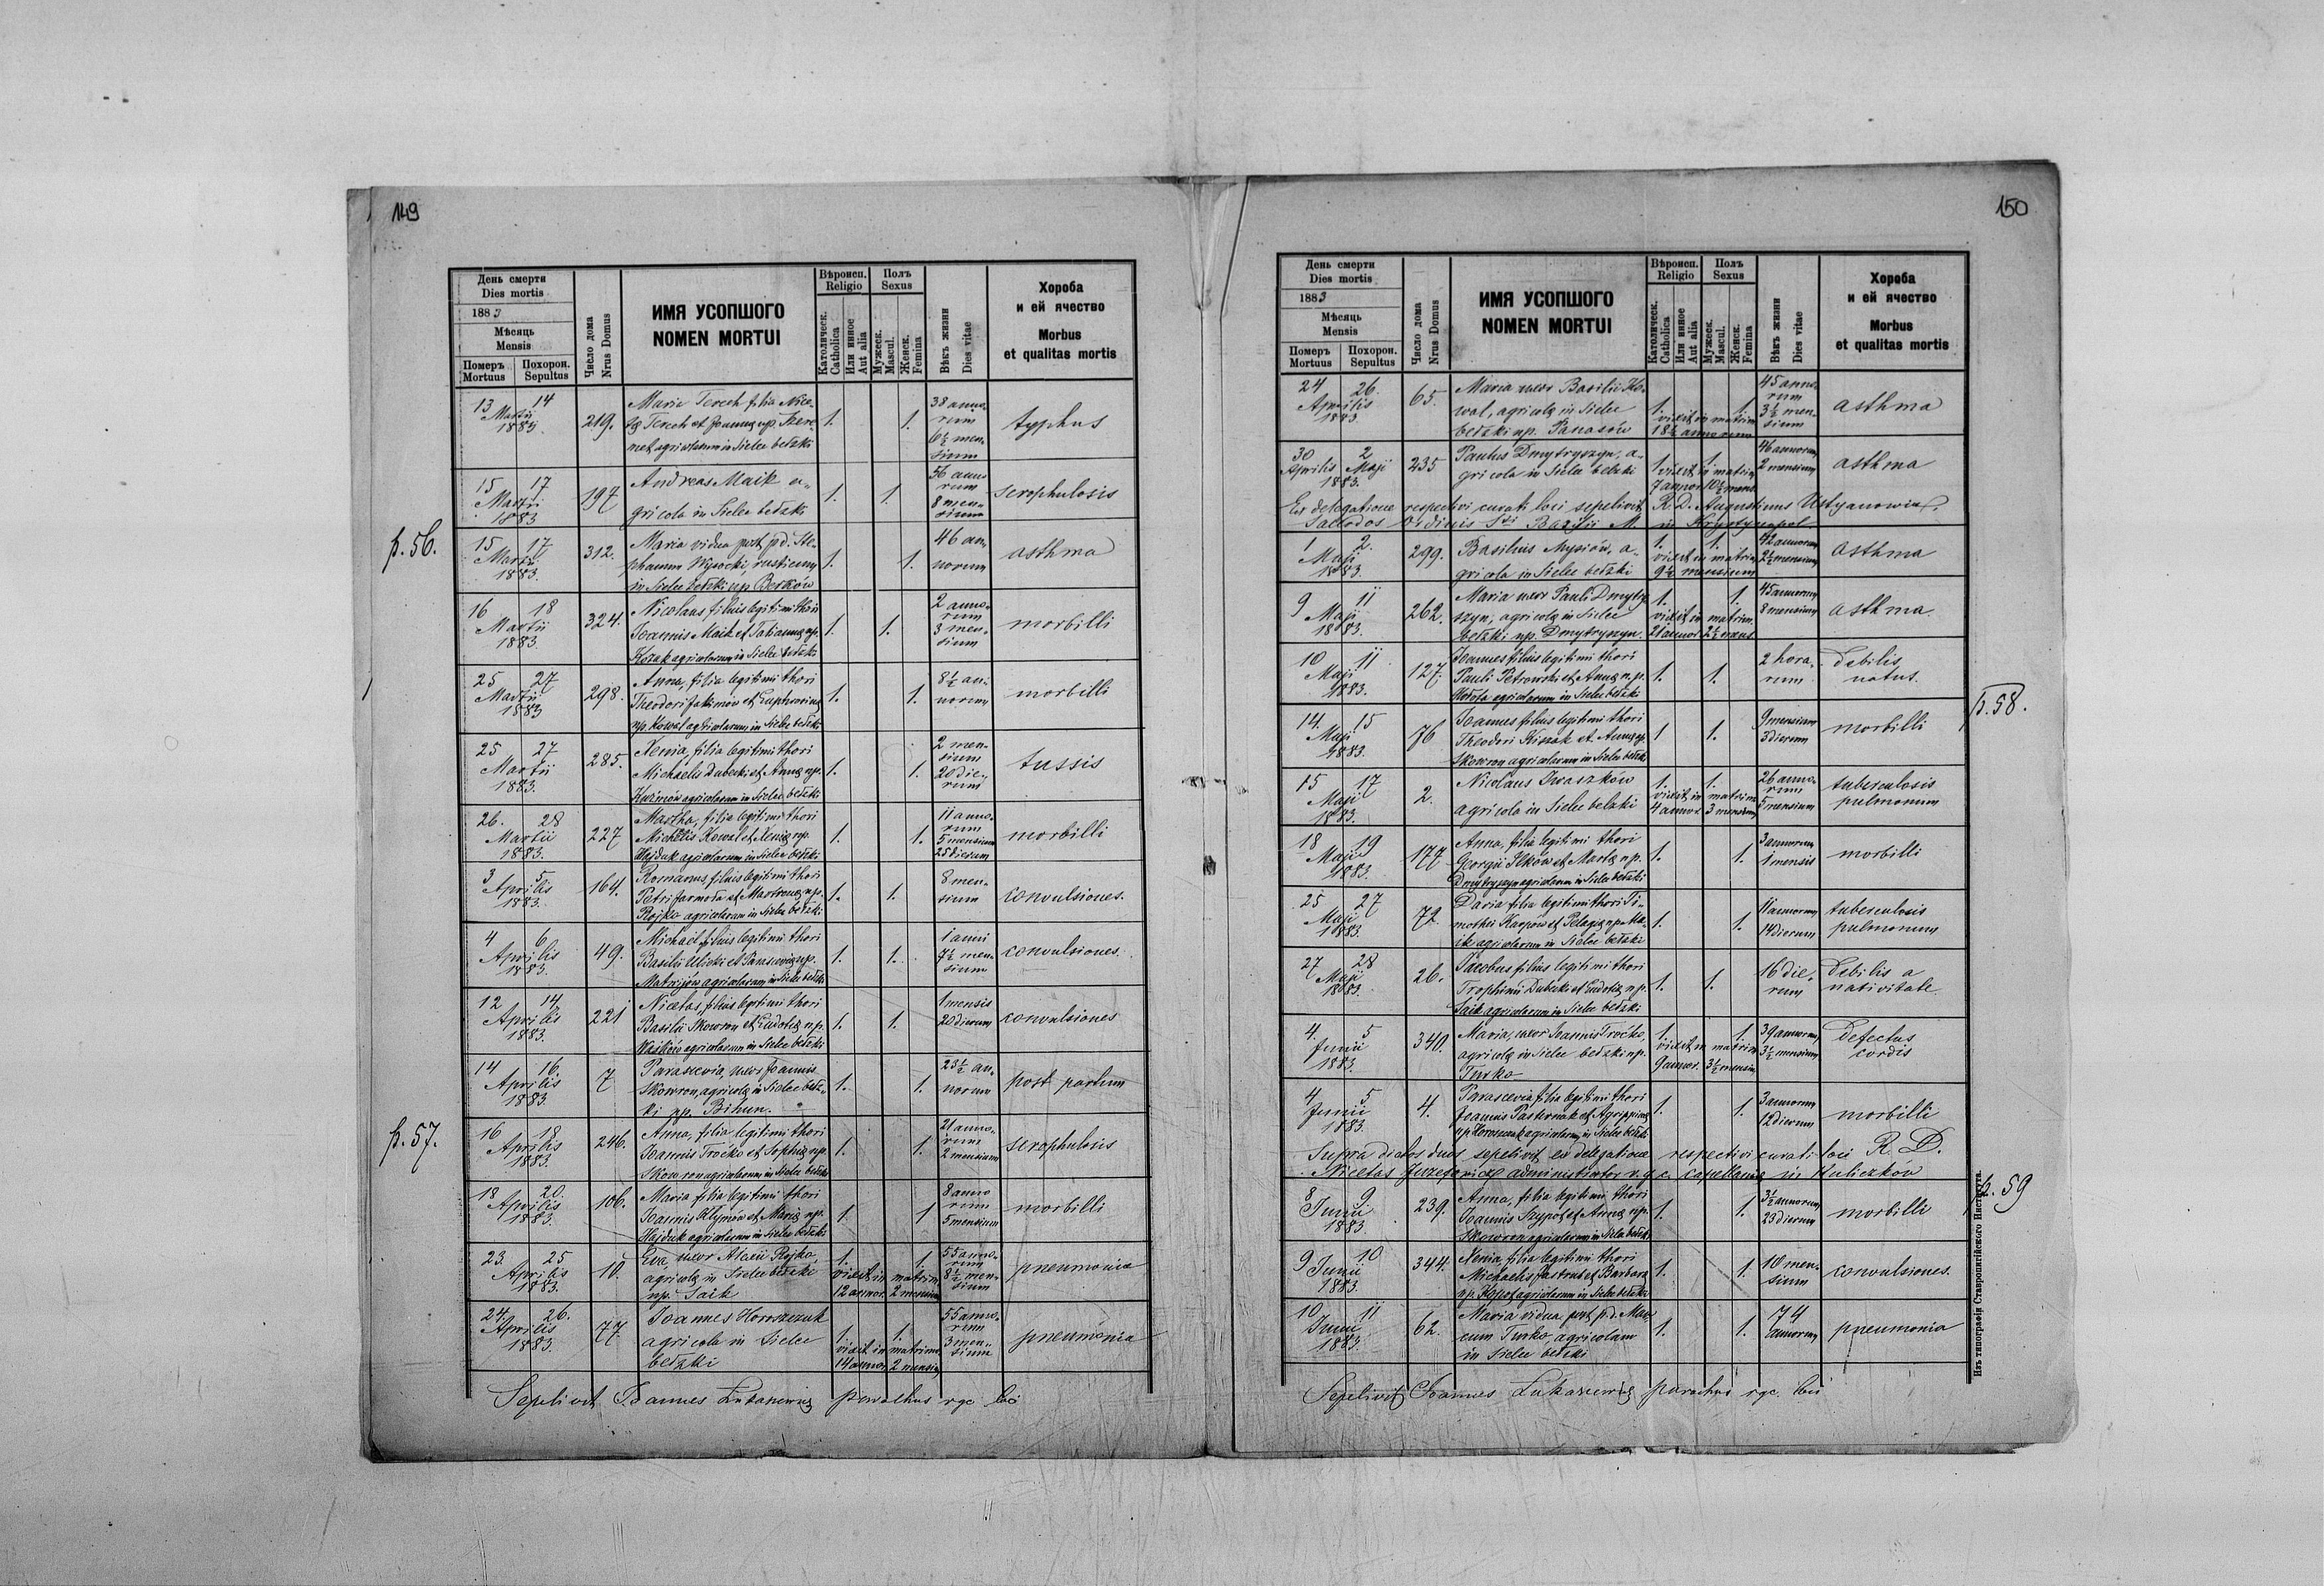 149
День смерти
Dies mortis
1883
Мѣсяць
Mensis
Померъ
Mortuus
Похорон.
Sepultus
Число дома
Nrus Domus
ИМЯ УСОПШОГО
NOMEN MORTUI
Вѣроисп.
Religio
Католическ.
Catholica
Или инное
Aut alia
Полъ
Sexus
Мужеск.
Mascul.
Женск.
Femina
Вѣкъ жизни
Dies vitae
Хороба
и ей ячество
Morbus
et qualitas mortis
13 14 Martii 1883 219. Maria Terech filia Nice-
tæ Terech et Joannæ np. Szere-
met agricolarum in Sielec bełzki
1. 1. 38 anno-
rum
6½ men-
sium
typhus
15 17 Martii 1883 197 Andreas Maik a-
gricola in Sielec bełzki
1. 1. 56 anno
rum
8 men-
sium
scrophulosis
p. 56.
15 17 Martii 1883. 312. Maria vidua post p.d. Ste-
phanum Wysocki, rusticum
in Sielec bełzki np. Berków
1. 1. 46 an-
norum
asthma
16 18 Martii 1883. 324. Nicolaus filius legitimi thori
Joannis Maik et Tatiannæ np.
Kozak agricolarum in Sielec bełzki
1. 1. 2 anno-
rum
3 men-
sium
morbilli
25 27 Martii 1883 298. Anna, filia legitimi thori
Theodori Jakimów et Euphrosinæ
np. Kowal agricolarum in Sielec bełzki
1. 1. 8½ an-
norum
morbilli
25 27 Martii 1883. 285. Xenia, filia legitimi thori
Michaelis Dubecki et Annæ np.
Kuźmów agricolarum in Sielec bełzki
1. 1. 2 men-
sium
20 die-
rum
tussis
26. 28 Martii 1883. 227 Martha, filia legitimi thori
Michaelis Kowal et Xeniæ np.
Hajduk agricolarum in Sielec bełzki
1. 1. 11 anno-
rum
5 mensium
25 dierum
morbilli
3 5 Aprilis 1883. 164. Romanus, filius legitimi thori
Petri Jarmoła et Martonæ np.
Rojko agricolarum in Sielec bełzki
1. 1. 8 men-
sium
convulsiones.
4 6 Aprilis 1883. 49. Michael filius legitimi thori
Basilii Ulicki et Parasceviæ np.
Matwijów agricolarum in Sielec bełzki
1. 1. 1 anni
7½ men-
sium
convulsiones.
12 14 Aprilis 1883. 221 Nicetas, filius legitimi thori
Basilii Skowron et Eudoxiæ np.
Waśków agricolarum in Sielec bełzki
1. 1. 1 mensis
20 dierum
convulsiones
14 16. Aprilis 1883. 7 Parascevia, uxor Joannis
Skowron, agricolæ in Sielec beł-
ki np. Bihun.
1. 1. 23½ an-
norum
post partum
p. 57.
16 18 Aprilis 1883. 246. Anna, filia legitimi thori
Joannis Troćko et Sophiæ np.
Skowron agricolarum in Sielec bełzki
1. 1. 21 anno-
rum
2 mensium
scrophulosis
18 20. Aprilis 1883. 106. Maria filia legitimi thori
Joannis Kłymów et Mariæ np.
Hajduk agricolarum in Sielec bełzki
1 1 8 anno
rum
5 mensium
morbilli
23. 25 Aprilis 1883. 10. Eva, uxor Alexii Rojko,
agricolæ in Sielec bełzki
np. Saik
1. 1.
vixit in matrim.
12 annor. 2 mensium
55 anno-
rum
8½ men-
sium
pneumonia
24. 26. Aprilis 1883. 77. Joannes Horoszczuk
agricola in Sielec
bełzki
1. 1.
vixit in matrimo.
14 annor. 2 mensis
55 anno-
rum
3 men-
sium
pneumonia
Sepelivit Joannes Lukasiewicz parochus rgc. loci
150
День смерти
Dies mortis
1883
Мѣсяць
Mensis
Померъ
Mortuus
Похорон.
Sepultus
Число дома
Nrus Domus
ИМЯ УСОПШОГО
NOMEN MORTUI
Вѣроисп.
Religio
Католическ.
Catholica
Или инное
Aut alia
Полъ
Sexus
Мужеск.
Mascul.
Женск.
Femina
Вѣкъ жизни
Dies vitae
Хороба
и ей ячество
Morbus
et qualitas mortis
24 26. Aprilis 1883. 65. Maria uxor Basilii Ko-
wal, agricolæ in Sielec
bełzki np. Panasów
1. 1.
vixit in matrim.
18½ annorum
45 anno-
rum
3½ men-
sium
asthma
30 Aprilis 2 Maji 1883. 235 Paulus Dmytryszyn, a-
gricola in Sielec bełzki
1 1.
vixit in matrim.
7 annor. 10½ mens.
46 annorum
2 mensium
asthma
Ex delegatione respectivi curati loci sepelivit R. D. Augustinus Ustyanowicz,
Sacerdos Ordinis Sti Basilii M. in Krystynopol
1 2. Maji 1883. 299. Basilius Mysiów, a-
gricola in Sielec bełzki
1. 1.
vixit in matrim
9½ mensium
42 annorum
2½ mensium
asthma
9 11 Maji 1883. 262. Maria uxor Pauli Dmytry
szyn, agricolæ in Sielec
bełzki np. Dmytryszyn.
1. 1.
vixit in matrim.
21 annor. 2½ mens
45 annorum
8 mensium
asthma
10 11 Maji 1883. 127. Joannes filius legitimi thori
Pauli Petrowski et Annæ np.
agricolarum in Sielec bełzki
1. 1. 2 hora-
rum
debilis
natus.
p. 58.
14. 15 Maji 1883. 76 Joannes filius legitimi thori
Theodori Kiszak et Annæ np.
Skowron agricolarum in Sielec bełzki
1 1. 9 mensium
3 dierum
morbilli
15 17 Maji 1883. 2. Nicolaus Iwaszków
agricola in Sielec bełzki
1. 1.
vixit in matrim
4 annor. 3 mensium
26 anno-
rum
5 mensium
tuberculosis
pulmonum
18 19 Maji 1883. 177 Anna, filia legitimi thori
Georgii Ilków et Marthæ np.
Dmytryszyn agricolarum in Sielec bełzki
1. 1. 3 annorum
1 mensis
morbilli
25 27 Maji 1883. 72. Daria filia legitimi thori Ti-
mothei Karpów et Pelagiæ np. Ma-
ik agricolarum in Sielec bełzki
1. 1. 11 annorum
14 dierum
tuberculosis
pulmonum
27 28 Maji 1883. 26. Jacobus filius legitimi thori
Trophimii Dubecki et Eudoxiæ np.
Saik agricolarum in Sielec bełzki
1. 1. 16 die-
rum
debilis a
nativitate
4. 5 Junii 1883. 340. Maria, uxor Joannis Troćko,
agricolæ in Sielec bełzki np.
Turko
1. 1.
vixit in matrim
9 annor. 3½ mensiu
39 annorum
3½ mensium
defectus
cordis
4 5 Junii 1883. 4. Parascevia filia legitimi thori
Joannis Pasternak et Agrippinæ
np. Horoszczuk agricolarum in Sielec bełzki
1. 1. 3 annorum
12 dierum
morbilli
Supra dictos duos sepelivit ex delegatione respectivi curati loci R. D.
Nicetas administrator r. g. c. Capellaniæ in Kuliczków
p. 59
8 9 Junii 1883 239. Anna, filia legitimi thori
Joannis Szypot et Annæ np.
Skowron agricolarum in Sielec bełzki
1. 1. 3½ annorum
23 dierum
morbilli
9 10 Junii 1883 344. Xenia filia legitimi thori
Michaelis Jastrub et Barbaræ
np. agricolarum in Sielec bełzki
1. 1. 10 men-
sium
convulsiones.
10 11 Junii 1883. 62. Maria vidua post p. d. Mar-
cum Turko, agricolam
in Sielec bełzki
1. 1. 74
annorum
pneumonia
Sepelivit Joannes Lukasiewicz parochus rgc. loci
Изъ типографіи Ставропигійского Института.